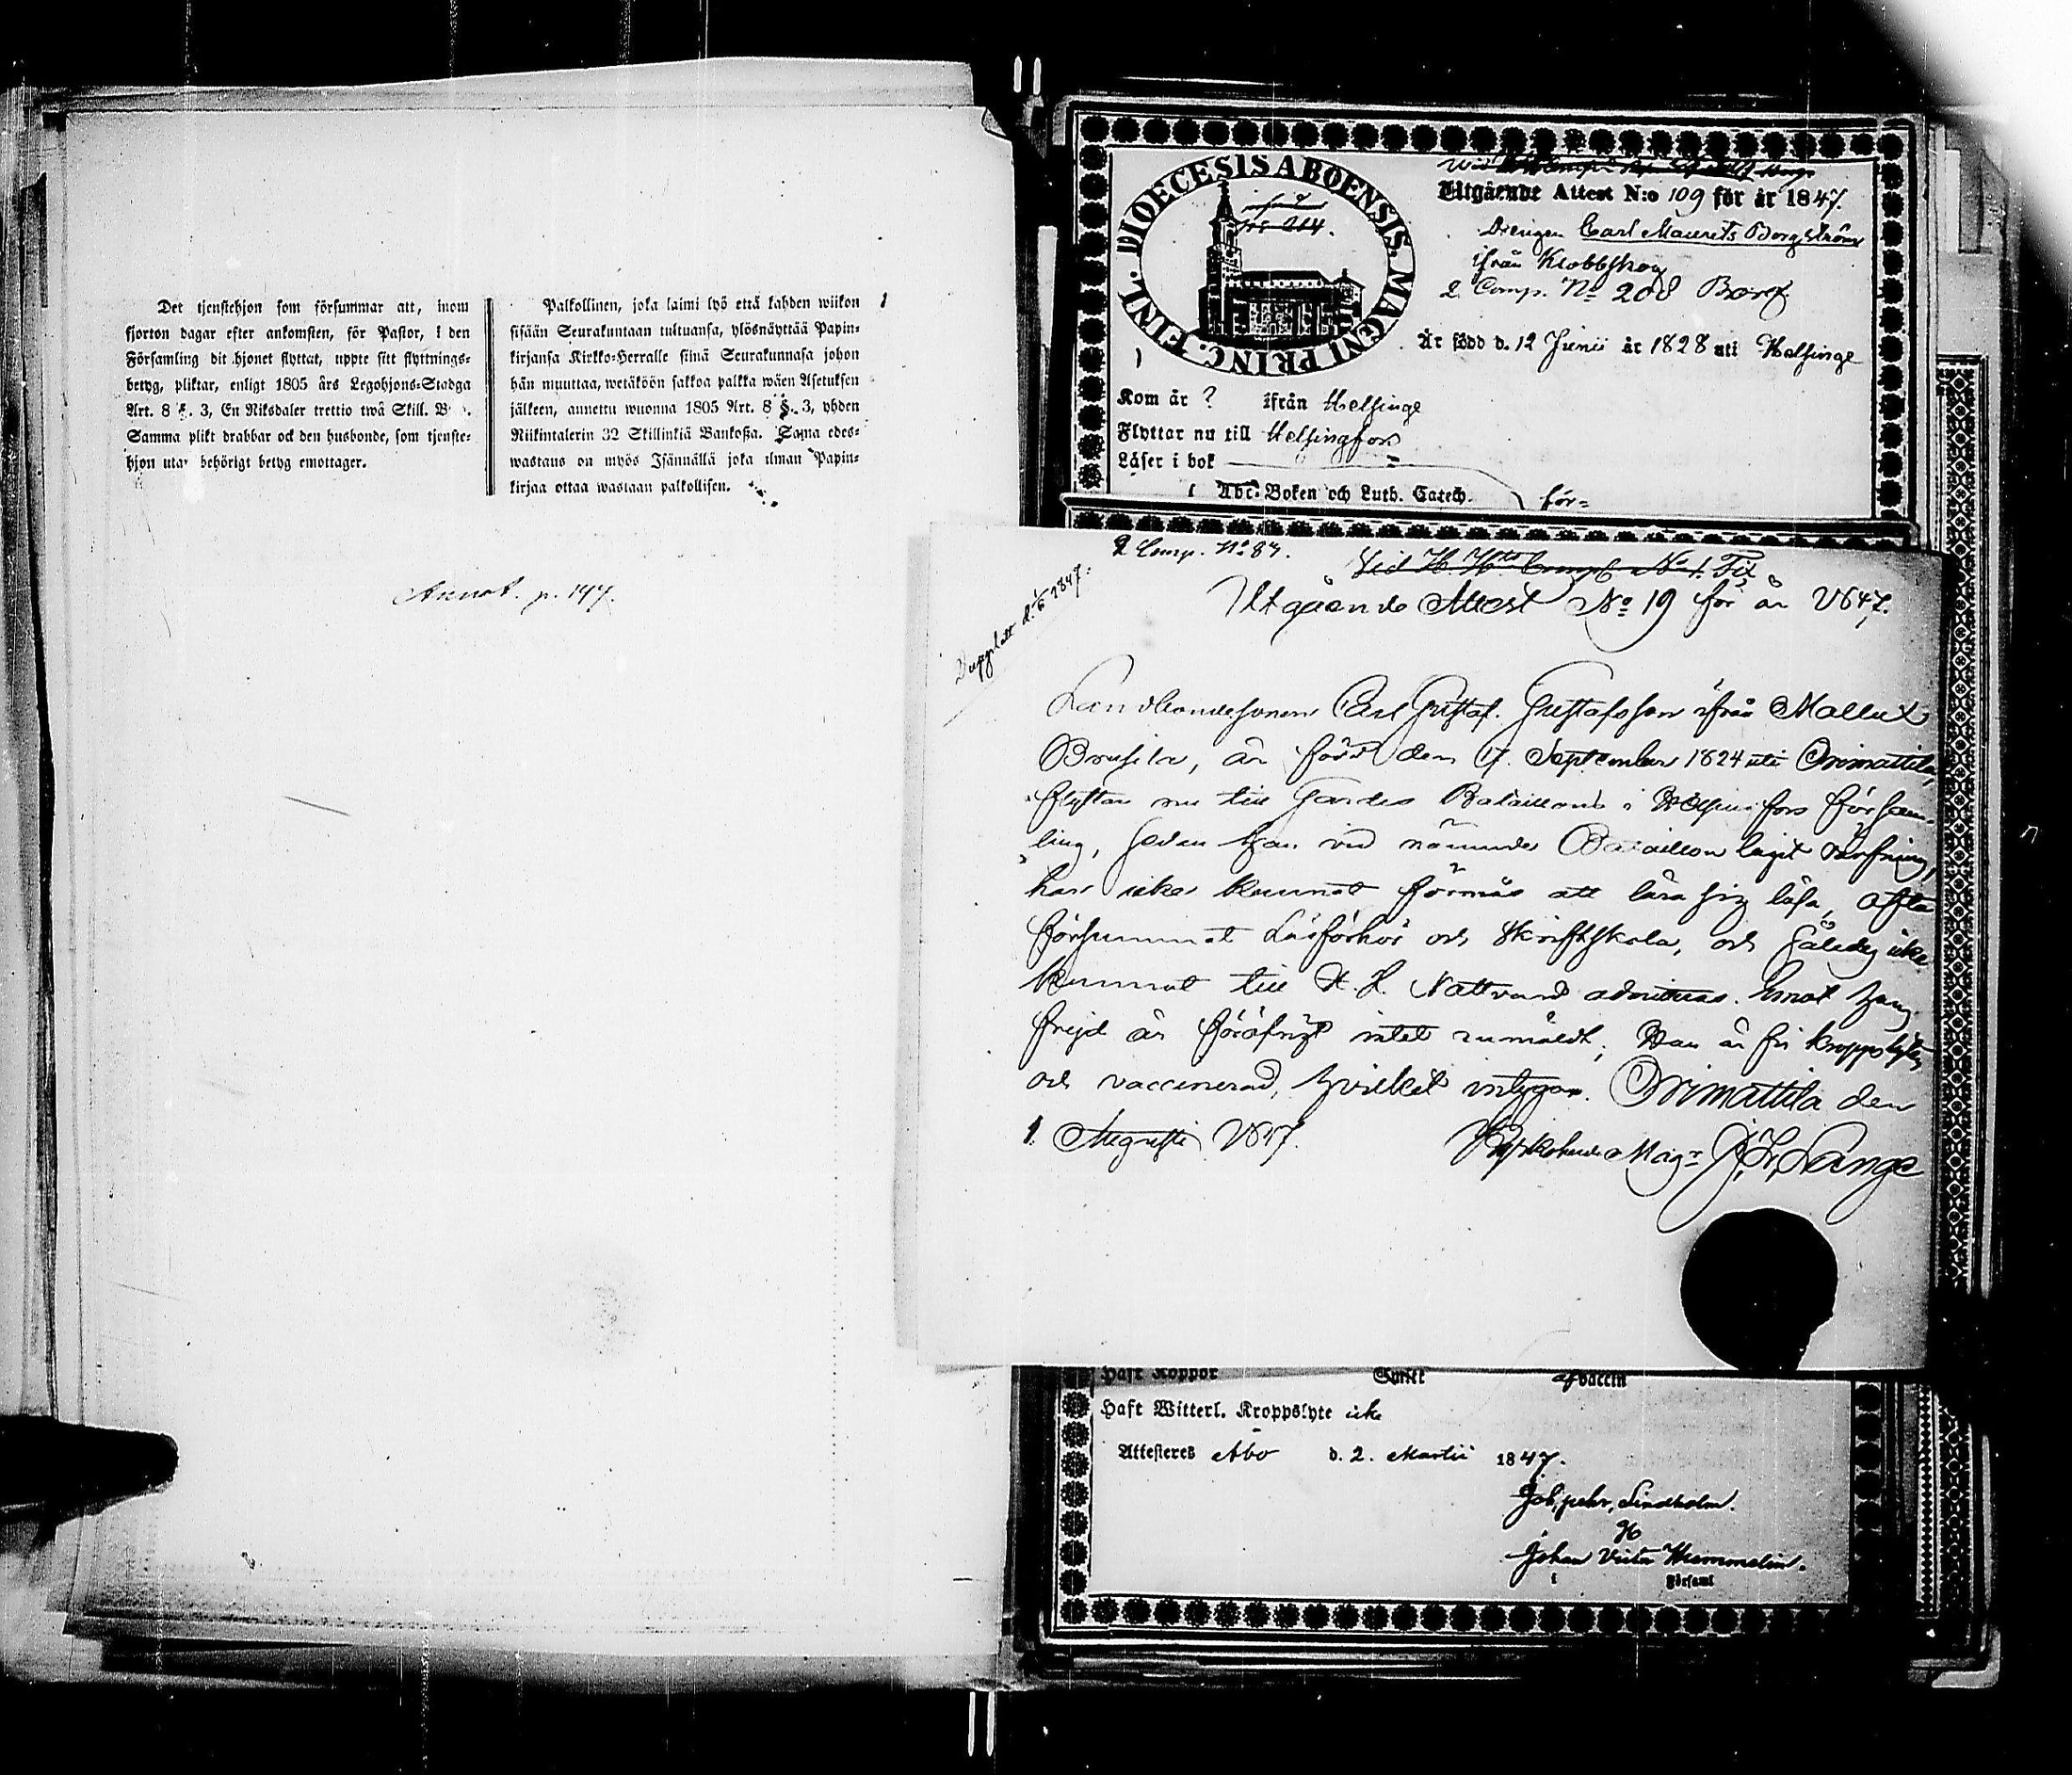 Det tjenstehjon som försummar att, inom
fjorton dagar efter ankomsten, för Pastor, i den
Församling dit hjonet flyttat, uppte sitt flyttnings-
betyg, pliktar, enligt 1805 års Legohjons-Stadga
Art. 8 §. 3, En Riksdaler trettio twå Skill. B
Samma plikt drabbar ock den husbonde, som tjenste-
hjon utan behörigt betyg emottager.
Palkollinen, joka laimi lyö että kahden wiikon
sisään Seurakuntaan tultuansa, ylösnäyttää Papin-
kirjansa Kirkko-Herralle siinä Seurakunnasa johon
hän muuttaa, wetäköön sakkoa palkka wäen Asetuksen
jälkeen, annettu wuonna 1805 Art. 8 §. 3, yhden
Riikintalerin 32 Skillinkiä Bankoßa. Sama edes-
wastaus on myös Isännällä joka ilman Papin-
kirjaa ottaa wastaan palkollisen.
1
Annot. p. 147.
DIOECESIS ABOENSIS. MAGNI PRINC. FINL.
Utgående Attest N:o 109 för år 1847.
Drengen Carl Maurits Borgström
ifrån Klobbskog
2 Comp. No 208 Boref.
Är född d. 12 Junii år 1828 uti Helsinge
Kom år ? ifrån Helsinge
Flyttar nu till Helsingfors
Läser i bok
Abc-Boken och Luth. Catech. för-
2 Comp. No 87.
Utgående Attest No 19 för år 1847.
Landbondesonen Carl Gustaf Gustafsson ifrån Mallux
är född den 17. September 1824 uti Orimattila,
flyttar nu till Gardes Bataillons i Helsingfors försam-
ling, sedan han vid nämnde Bataillon tagit värfning,
har icke kunnat förmås att lära sig läsa, ofta
försummat Läsförhör och Skriftskola, och således icke
kunnat till H. H. Nattvard admitteras. Emot hans
frejd är föröfrigt intet anmäldt; Han är fri kroppslyten
och vaccinerad, hvilket intygar. Orimattila den
1. Augusti 1847. Mag:r J. H. Lange
Haft Koppor af vaccin
Haft Witterl. Kroppslyte icke
Attesteres Åbo d. 2. Martii 1847.
Joh. pehr. Lindholm.
Johan Victor Hummelin.
i Församl